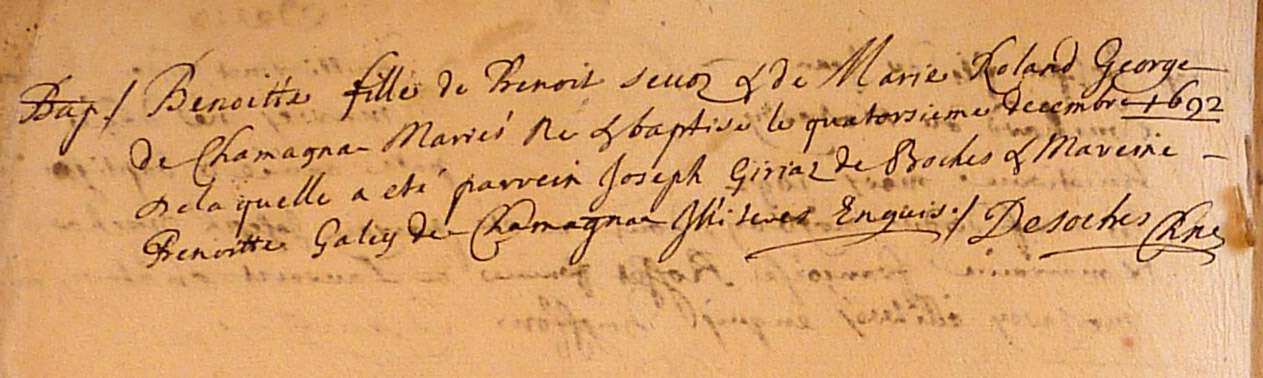 Bap./ Benoitte fille de Benoit seuoz & de Marie Roland George
de Chamagna Mariés Né & baptise le quatorsieme decembre 1692
De laquelle a eté parrein Joseph Giriaz de Boches & Mareine
Benoitte Galey de Chamagna Illiteres Enquis./ Desoches Chne